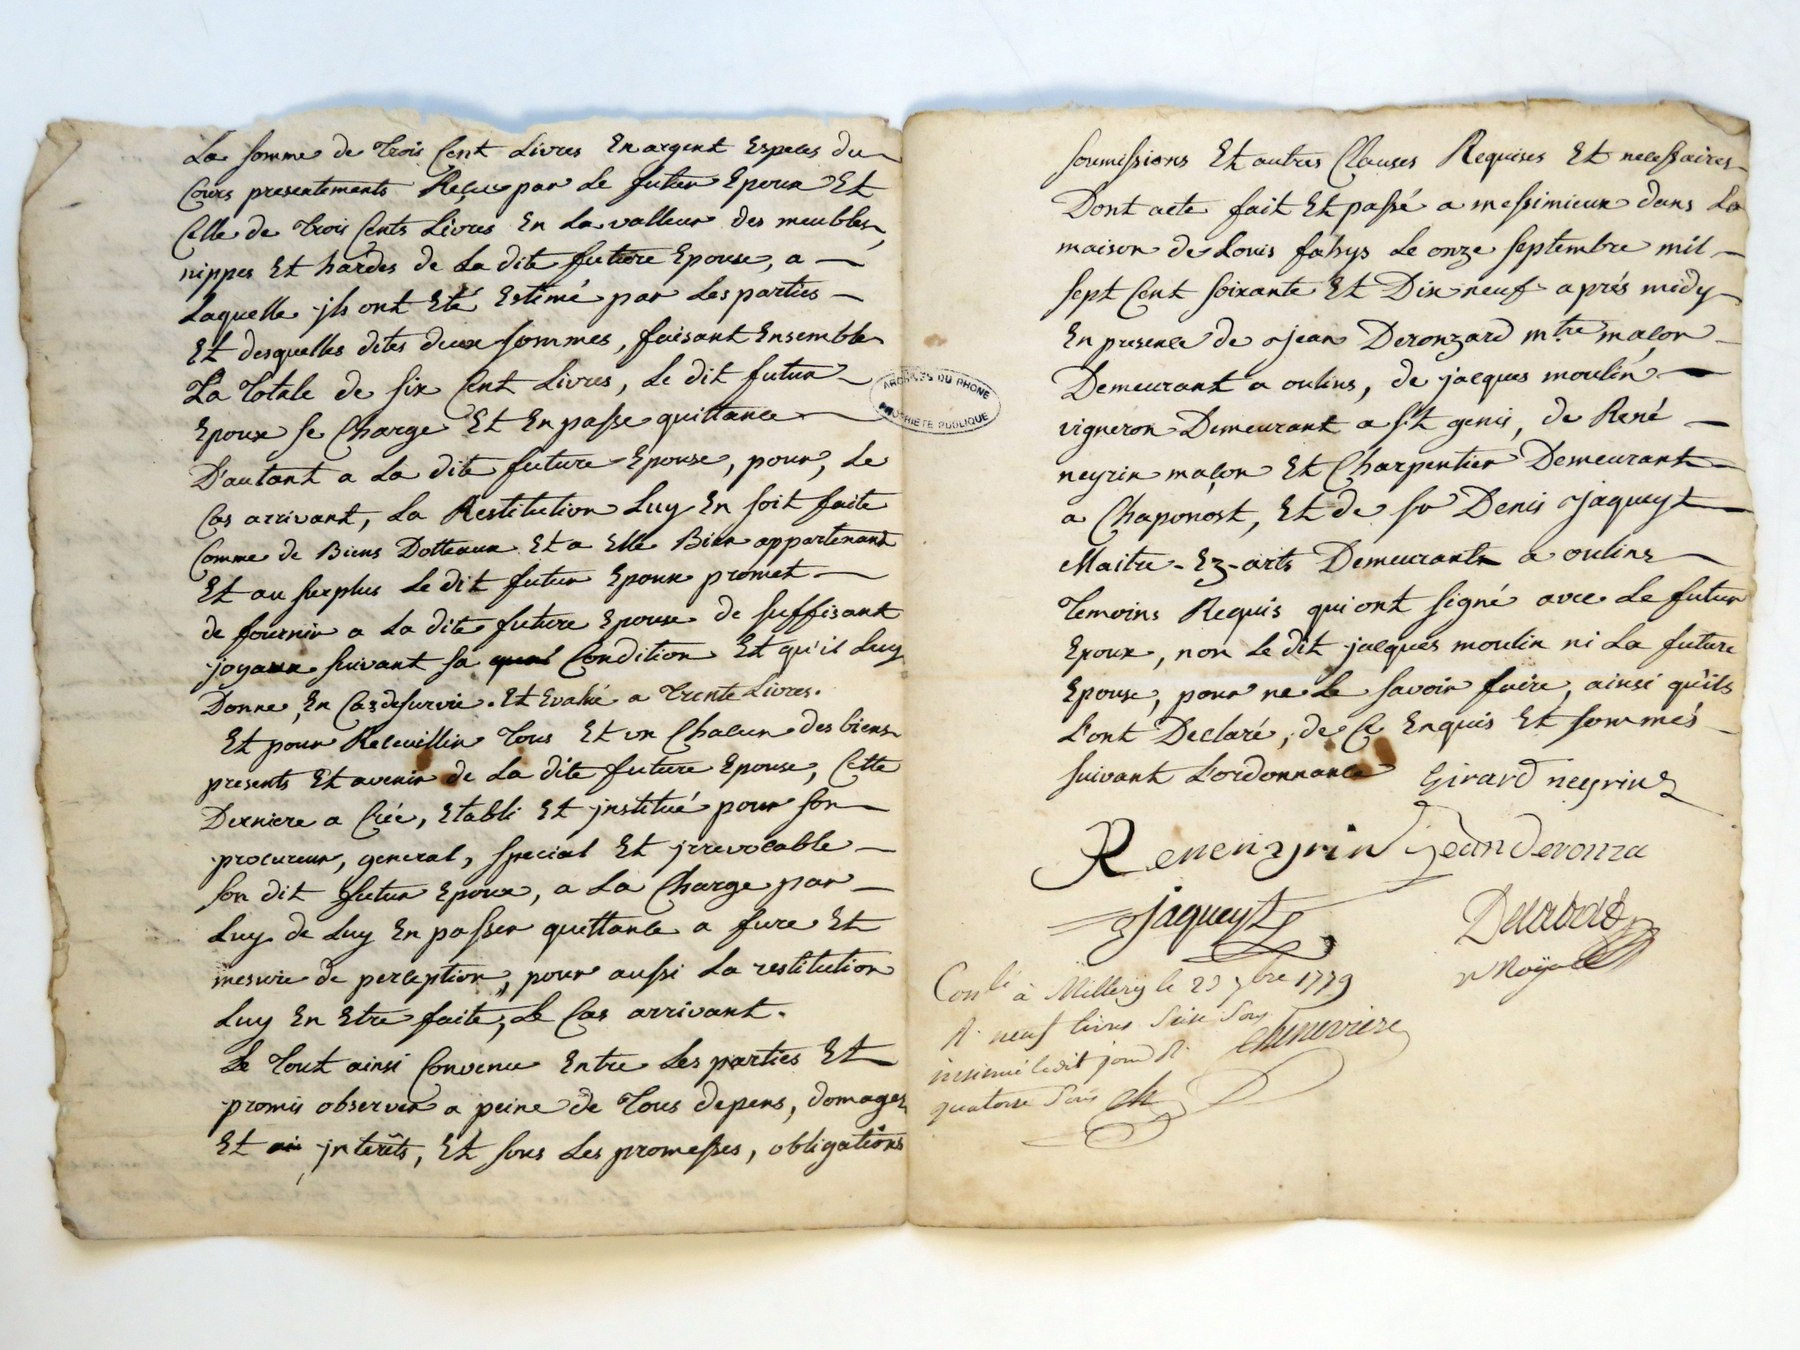 La somme de Trois Cent Livres En argent Especes du
Cours presentements Reçu par Le futur Epoux Et
Celle de Trois Cents Livres En La valleur des meubles,
nippes Et hardes de La dite future Epouse, a
Laquelle jls ont Eté Estimé par Les parties
Et desquelles dites deux sommes, faisant Ensemble
La Totale de six Cent Livres, Le dit futur
Epoux se Charge Et En passe quittance
D'autant a La dite future Epouse, pour, Le
Cas arrivant, La Restitution Luy En soit faite
Comme de Biens Dotteaux Et a Elle Bien appartenant
Et au surplus Le dit futur Epoux promet
de fournir a La dite future Epouse de suffisant
joyaux suivant sa Condition Et qu'il Luy
Donne, En Cas de survie. Et Evalué a Trente Livres.
Et pour Receuillir Tous Et un Chacun des biens
presents Et avenir de La dite future Epouse, Cette
Derniere a Créé, Etabli Et jnstitué pour son
procureur, general, special Et jrrevocable
son dit futur Epoux, a La Charge par
Luy de Luy En passer quittance a fure Et
mesure de perception, pour aussi La restitution
Luy En Etre faite, Le Cas arrivant.
Le Tout ainsi Convenu Entre Les parties Et
promis observer a peine de Tous depens, domages
Et jnterêts, Et sous Les promesses, obligations
ARCHIVES DU RHONE
PROPRIÉTÉ PUBLIQUE
soumissions Et autres Clauses Requises Et necessaires
Dont acte fait Et passé a messimieux dans La
maison de Louis fahys Le onze septembre mil
sept Cent soixante Et Dix neuf après midy
En presence de Jean Deronzard mtre maçon
Demeurant a oulins, de jacques moulin
vigneron Demeurant a st genis, de René
neyrin maçon Et Charpentier Demeurant
a Chaponost, Et de sr Denis Jaqueyt
Maitre-Ez-arts Demeurants a oulins
Temoins Requis qui ont signé avec Le futur
Epoux, non Le dit jacques moulin ni La future
Epouse, pour ne Le savoir faire, ainsi qu'ils
L'ont Declaré, de Ce Enquis Et sommés
suivant L'ordonnance Girard neyrin
Rene neyrin Jean deronza
Jaqueyt
Conlé à Millery le 23 7bre 1779
R. neuf livres Seise Sous
insinué ledit jour R. Chenevriere
quatorze Sous